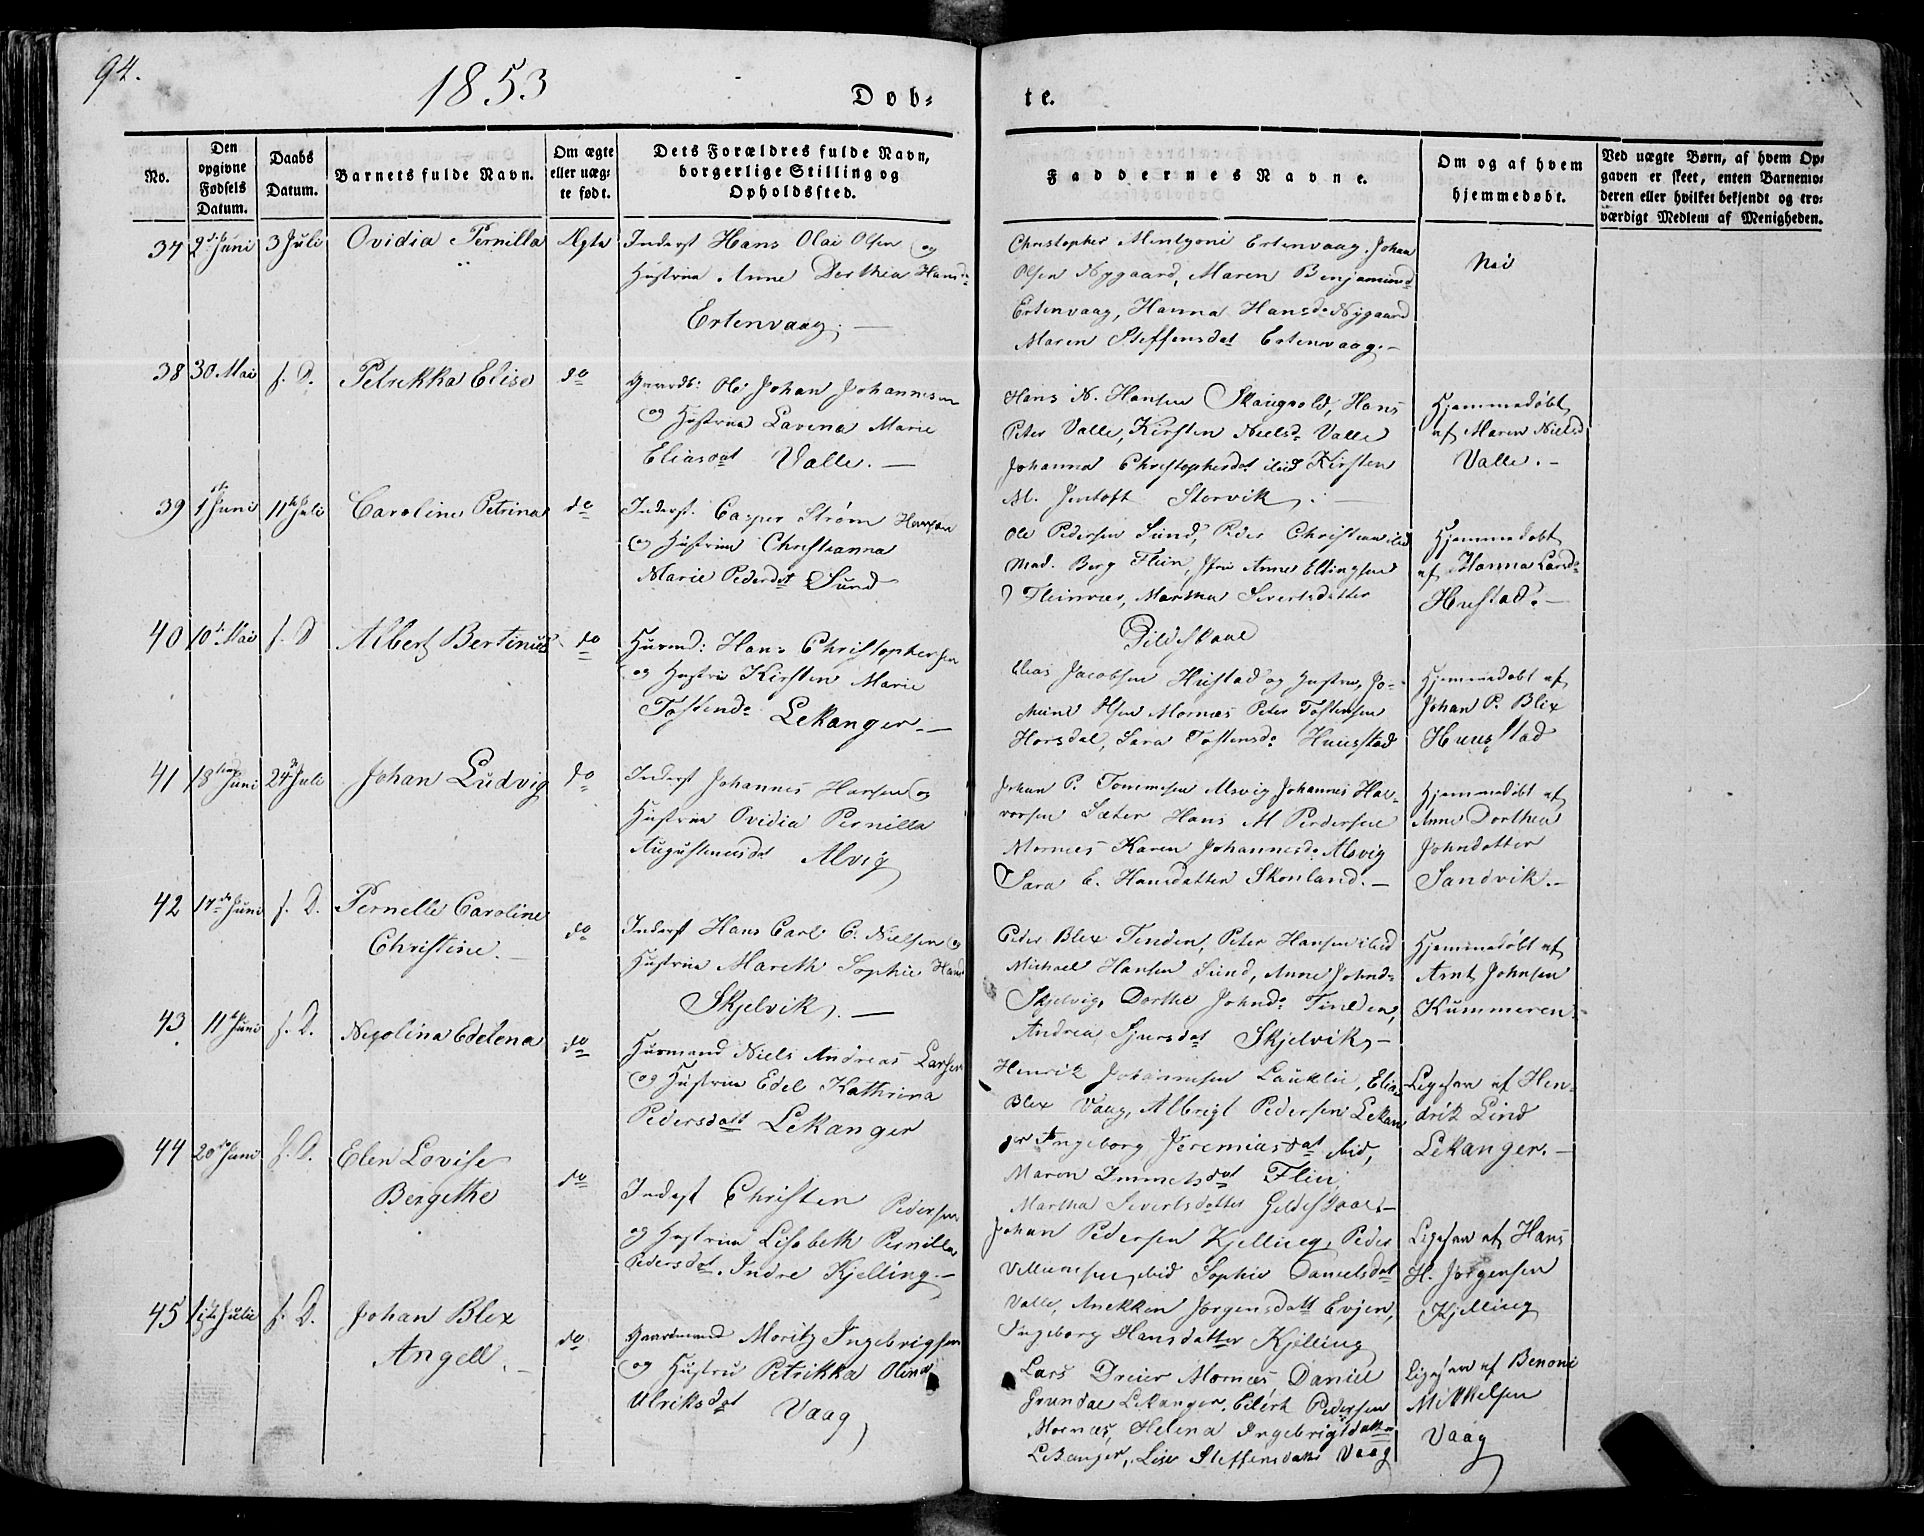 94.
1853
Døb-
te.
No.
Den opgivne Fødsels Datum.
Daabs Datum.
Barnets fulde Navn.
Om ægte eller uæg-
te født.
Dets Forældres fulde Navn,
borgerlige Stilling og
Opholdssted.
Faddernes Navne.
Om og af hvem
hjemmedøbt.
Ved uægte Børn, af hvem Op-
gaven er skeet, enten Barnemo-
deren eller hvilket bekjendt og tro-
værdigt Medlem af Menigheden.
37 2d Juni 3 Juli Ovidia Pernilla Ægte
Inderst Hans Olai Olsen og
Hustrue Anne Dorthea Hansd.
Ertenvaag. —
Christopher Ertenvaag. Johan
Olsen Nygaard, Maren Benjamind
Ertenvaag, Hanna Hansd. Nygaard
Maren Steffensdat Ertenvaag. —
Nei
38 30 Mai s. D. Petrikka Elise do
Gaardb: Johan Johannesen
og Hustrue Lavina Marie
Eliasdat Valle. —
Hans N. Hansen Skaugvold, Hans
Peter Valle, Kirsten Nielsd. Valle
Johanna Christophersdat ibid Kirsten
M. Jentoft Storvik. —
Hjemmedøbt
af Maren Nielsd
Valle. —
39 1ste Juni 11te Juli Caroline Petrina do
Inderst. Casper Strøm Hansen
og Hustrue Christianna
Marie Pedersdat Sund
Ole Pedersen Sund, Peder Christian ibid
Mad. Berg Flein, Anne Ellingsen
Fleinvær, Martha Sivertsdatter
Gildeskaal
Hjemmedøbt
af Hanna Larsd.
Hustad. —
40 10de Mai s. D Albert Bertinus do
Huusmd: Hans Christophersen
og Hustrue Kirsten Marie
Tostensd. Lekanger. —
Elias Jacobsen Hustad og Hustrue, Jo-
Olsen Mornæs Peter Tostensen
Horsdal, Sara Tostensd. Huusstad
Hjemmedøbt af
Johan P. Blix
Huusstad
41 18tende Juni 24de Juli Johan Ludvig do
Inderst Johannes Hansen og
Hustrue Ovidia Pernilla
Augustinusdat Alvig
Johan P. Tommesen Alsvig Johannes Hal-
vorsen Sæter Hans M Perdersen
Mornæs Karen Johannesd. Alsvig
Sara E. Hansdatter Skonland. —
Hjemmedøbt af
Anne Dorthea
Johndatter
Sandvik. —
42 17de Juni s. D. Pernelle Caroline
Christine. — do
Inderst Hans Carl C. Nielsen og
Hustrue Mareth Sophie Hansd
Skjelvik. —
Peder Blix Tinden, Peter Hansen ibid
Michael Hansen Sund, Anne Johnd.
Skjelvig, Dorthe Johnd. Tinden,
Andrea Sjursdat Skjelvik, —
Hjemmedøbt af
Arnt Johnsen
Kummeren.
43 11te Juni s. D. Nicolina Edelena do
Huusmand Niels Andreas Larsen
og Hustrue Edel Kathrina
Pedersdatt Lekanger
Henrik Johannesen Lauklie, Elias
Blix Vaag, Albrigt Pedersen Lekan
ger Ingeborg Jeremiasdat ibid,
Maren Emmetsdat Flein,
Martha Sivertsdatter Gildeskaal. —
Ligesaa af Hen-
drik Lind
Lekanger. —
44 20de Juni s. D. Elen Lovise
Bergithe do
Inderst Christen Pedersen
og Hustrue Lisabeth Pernilla
Pedersdat. Indre Kjelling. —
Johan Pedersen Kjelling, Peder
Villumsen ibid Sophie Danielsdat
Valle, Anekken Jørgensdatt Evjen,
Ingeborg Hansdatter Kjelling
Ligesaa af Hans
H. Jørgensen
Kjelling
45 1ste Julie s. D. Johan Blix
Angell. — do.
Gaardmand Moritz Ingebrigtsen
og Hustru Petrikka Olina
Ulriksdat Vaag
Lars Dreier Mornæs Daniel
Grundal Lekanger, Eilert Pedersen
Mornæs, Helena Ingebrigtdatter
Lekanger, Lise Steffensdatter Vaag
Ligesaa af Benoni
Mikkelsen
Vaag